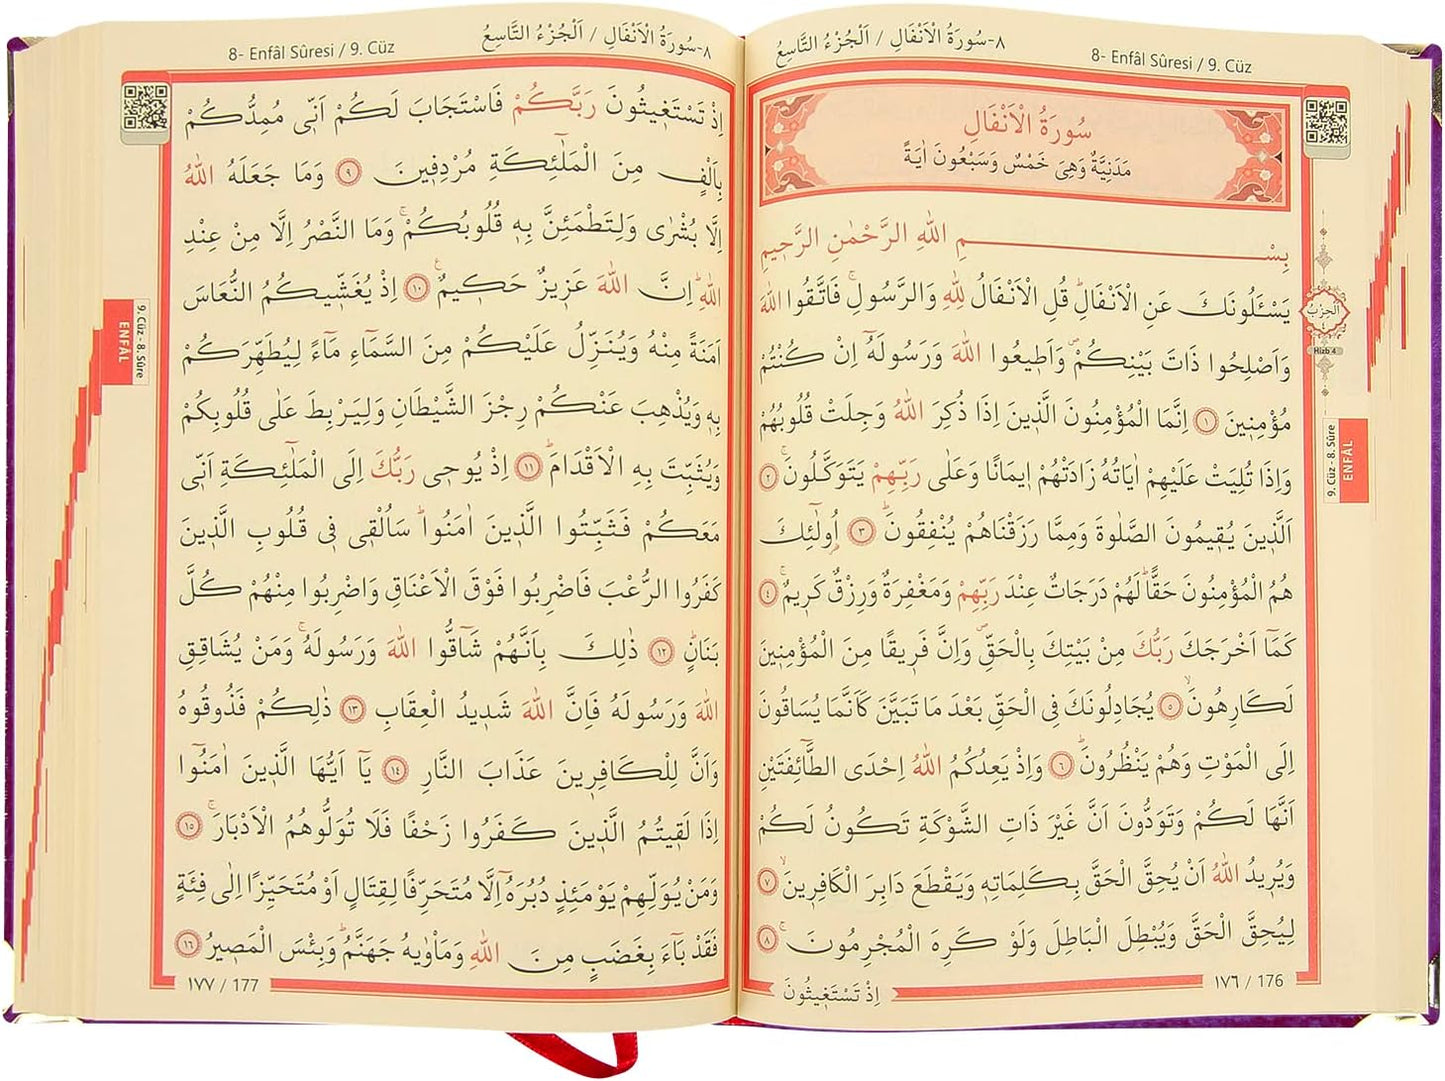 ٨-سُورَةُ الْاَنْفَالِ / اَلْجُزْءُ التَّاسِعُ
8- Enfâl Sûresi / 9. Cüz
سُورَةُ الْاَنْفَالِ
مَدَنِيَّةٌ وَهِىَ خَمْسٌ وَسَبْعُونَ اٰيَةً
بِسْـــمِ اللهِ الرَّحْمٰنِ الرَّحِيمِ
يَسْـَٔلُونَكَ عَنِ الْاَنْفَالِۜ قُلِ الْاَنْفَالُ لِلّٰهِ وَالرَّسُولِۚ فَاتَّقُوا اللهَ
وَاَصْلِحُوا ذَاتَ بَيْنِكُمْۖ وَاَطِيعُوا اللهَ وَرَسُولَهُٓ اِنْ كُنْتُمْ
مُؤْمِنِينَ ﴿١﴾ اِنَّمَا الْمُؤْمِنُونَ الَّذِينَ اِذَا ذُكِرَ اللهُ وَجِلَتْ قُلُوبُهُمْ
وَاِذَا تُلِيَتْ عَلَيْهِمْ اٰيَاتُهُ زَادَتْهُمْ اِيمَانًا وَعَلٰى رَبِّهِمْ يَتَوَكَّلُونَۚ ﴿٢﴾
اَلَّذِينَ يُقِيمُونَ الصَّلٰوةَ وَمِمَّا رَزَقْنَاهُمْ يُنْفِقُونَۜ ﴿٣﴾ اُولٰٓئِكَ
هُمُ الْمُؤْمِنُونَ حَقًّاۜ لَهُمْ دَرَجَاتٌ عِنْدَ رَبِّهِمْ وَمَغْفِرَةٌ وَرِزْقٌ كَرِيمٌۚ ﴿٤﴾
كَمَٓا اَخْرَجَكَ رَبُّكَ مِنْ بَيْتِكَ بِالْحَقِّۖ وَاِنَّ فَرِيقًا مِنَ الْمُؤْمِنِينَ
لَكَارِهُونَۙ ﴿٥﴾ يُجَادِلُونَكَ فِى الْحَقِّ بَعْدَ مَا تَبَيَّنَ كَاَنَّمَا يُسَاقُونَ
اِلَى الْمَوْتِ وَهُمْ يَنْظُرُونَۜ ﴿٦﴾ وَاِذْ يَعِدُكُمُ اللهُ اِحْدَى الطَّٓائِفَتَيْنِ
اَنَّهَا لَكُمْ وَتَوَدُّونَ اَنَّ غَيْرَ ذَاتِ الشَّوْكَةِ تَكُونُ لَكُمْ
وَيُرِيدُ اللهُ اَنْ يُحِقَّ الْحَقَّ بِكَلِمَاتِهِ وَيَقْطَعَ دَابِرَ الْكَافِرِينَۙ ﴿٧﴾
لِيُحِقَّ الْحَقَّ وَيُبْطِلَ الْبَاطِلَ وَلَوْ كَرِهَ الْمُجْرِمُونَۚ ﴿٨﴾
اِذْ تَسْتَغِيثُونَ
١٧٦ / 176
اَلْحِزْبُ
٤
Hizb 4
9. Cüz - 8. Sûre
ENFÂL
8- Enfâl Sûresi / 9. Cüz
٨-سُورَةُ الْاَنْفَالِ / اَلْجُزْءُ التَّاسِعُ
اِذْ تَسْتَغِيثُونَ رَبَّكُمْ فَاسْتَجَابَ لَكُمْ اَنِّى مُمِدُّكُمْ
بِاَلْفٍ مِنَ الْمَلٰٓئِكَةِ مُرْدِفِينَ ﴿٩﴾ وَمَا جَعَلَهُ اللهُ
اِلَّا بُشْرٰى وَلِتَطْمَئِنَّ بِهِ قُلُوبُكُمْۚ وَمَا النَّصْرُ اِلَّا مِنْ عِنْدِ
اللهِۜ اِنَّ اللهَ عَزِيزٌ حَكِيمٌ۟ ﴿١٠﴾ اِذْ يُغَشِّيكُمُ النُّعَاسَ
اَمَنَةً مِنْهُ وَيُنَزِّلُ عَلَيْكُمْ مِنَ السَّمَٓاءِ مَٓاءً لِيُطَهِّرَكُمْ
بِهِ وَيُذْهِبَ عَنْكُمْ رِجْزَ الشَّيْطَانِ وَلِيَرْبِطَ عَلٰى قُلُوبِكُمْ
وَيُثَبِّتَ بِهِ الْاَقْدَامَۜ ﴿١١﴾ اِذْ يُوحِى رَبُّكَ اِلَى الْمَلٰٓئِكَةِ اَنِّى
مَعَكُمْ فَثَبِّتُوا الَّذِينَ اٰمَنُواۜ سَاُلْقِى فِى قُلُوبِ الَّذِينَ
كَفَرُوا الرُّعْبَ فَاضْرِبُوا فَوْقَ الْاَعْنَاقِ وَاضْرِبُوا مِنْهُمْ كُلَّ
بَنَانٍۜ ﴿١٢﴾ ذٰلِكَ بِاَنَّهُمْ شَٓاقُّوا اللهَ وَرَسُولَهُۚ وَمَنْ يُشَاقِقِ
اللهَ وَرَسُولَهُ فَاِنَّ اللهَ شَدِيدُ الْعِقَابِ ﴿١٣﴾ ذٰلِكُمْ فَذُوقُوهُ
وَاَنَّ لِلْكَافِرِينَ عَذَابَ النَّارِ ﴿١٤﴾ يَٓا اَيُّهَا الَّذِينَ اٰمَنُٓوا
اِذَا لَقِيتُمُ الَّذِينَ كَفَرُوا زَحْفًا فَلَا تُوَلُّوهُمُ الْاَدْبَارَۚ ﴿١٥﴾
وَمَنْ يُوَلِّهِمْ يَوْمَئِذٍ دُبُرَهُٓ اِلَّا مُتَحَرِّفًا لِقِتَالٍ اَوْ مُتَحَيِّزًا اِلٰى فِئَةٍ
فَقَدْ بَٓاءَ بِغَضَبٍ مِنَ اللهِ وَمَاْوٰيهُ جَهَنَّمُۜ وَبِئْسَ الْمَصِيرُ ﴿١٦﴾
١٧٧ / 177
9. Cüz - 8. Sûre
ENFÂL